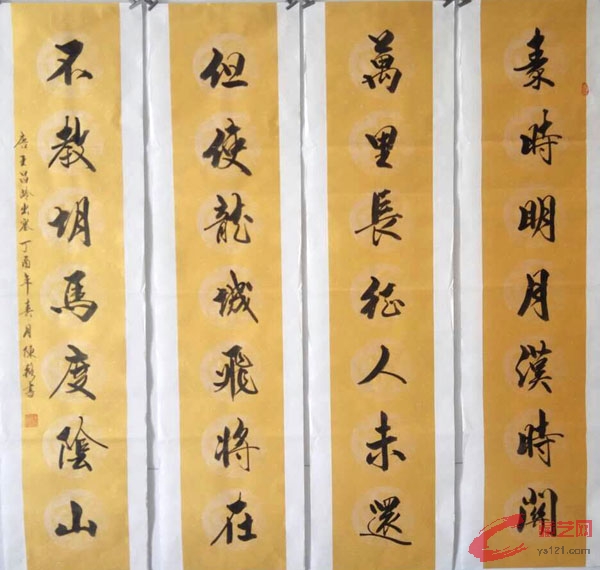 秦時明月漢時關
萬里長征人未還
但使龍城飛將在
不教胡馬度陰山
唐王昌齡出塞 丁酉年春月陳書
艺网
ys121.com